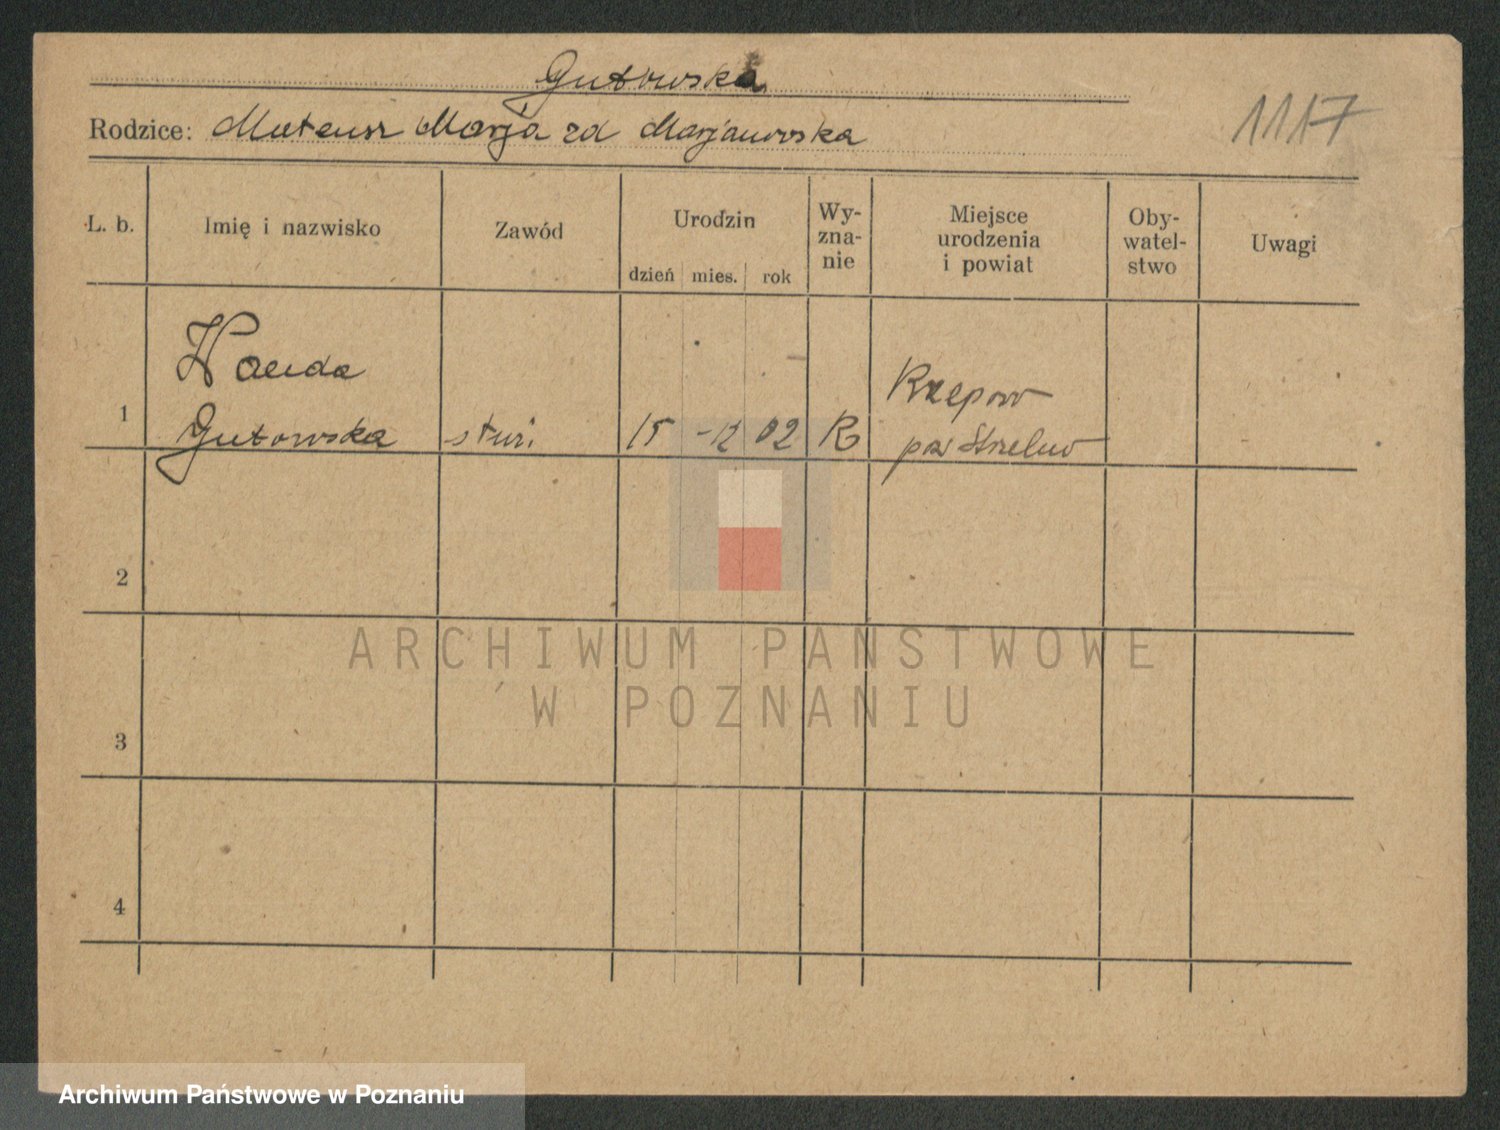 Gutowska
1117
Rodzice: Mateusz Marja zd Marjanowska
L. b.
Imię i nazwisko
Zawód
Urodzin
dzień mies. rok
Wy-
zna-
nie
Miejsce
urodzenia
i powiat
Oby-
watel-
stwo
Uwagi
1
Wanda
Gutowska
15 - 12 02
R
pow Strelno
2
3
4
ARCHIWUM PAŃSTWOWE
W POZNANIU
Archiwum Państwowe w Poznaniu